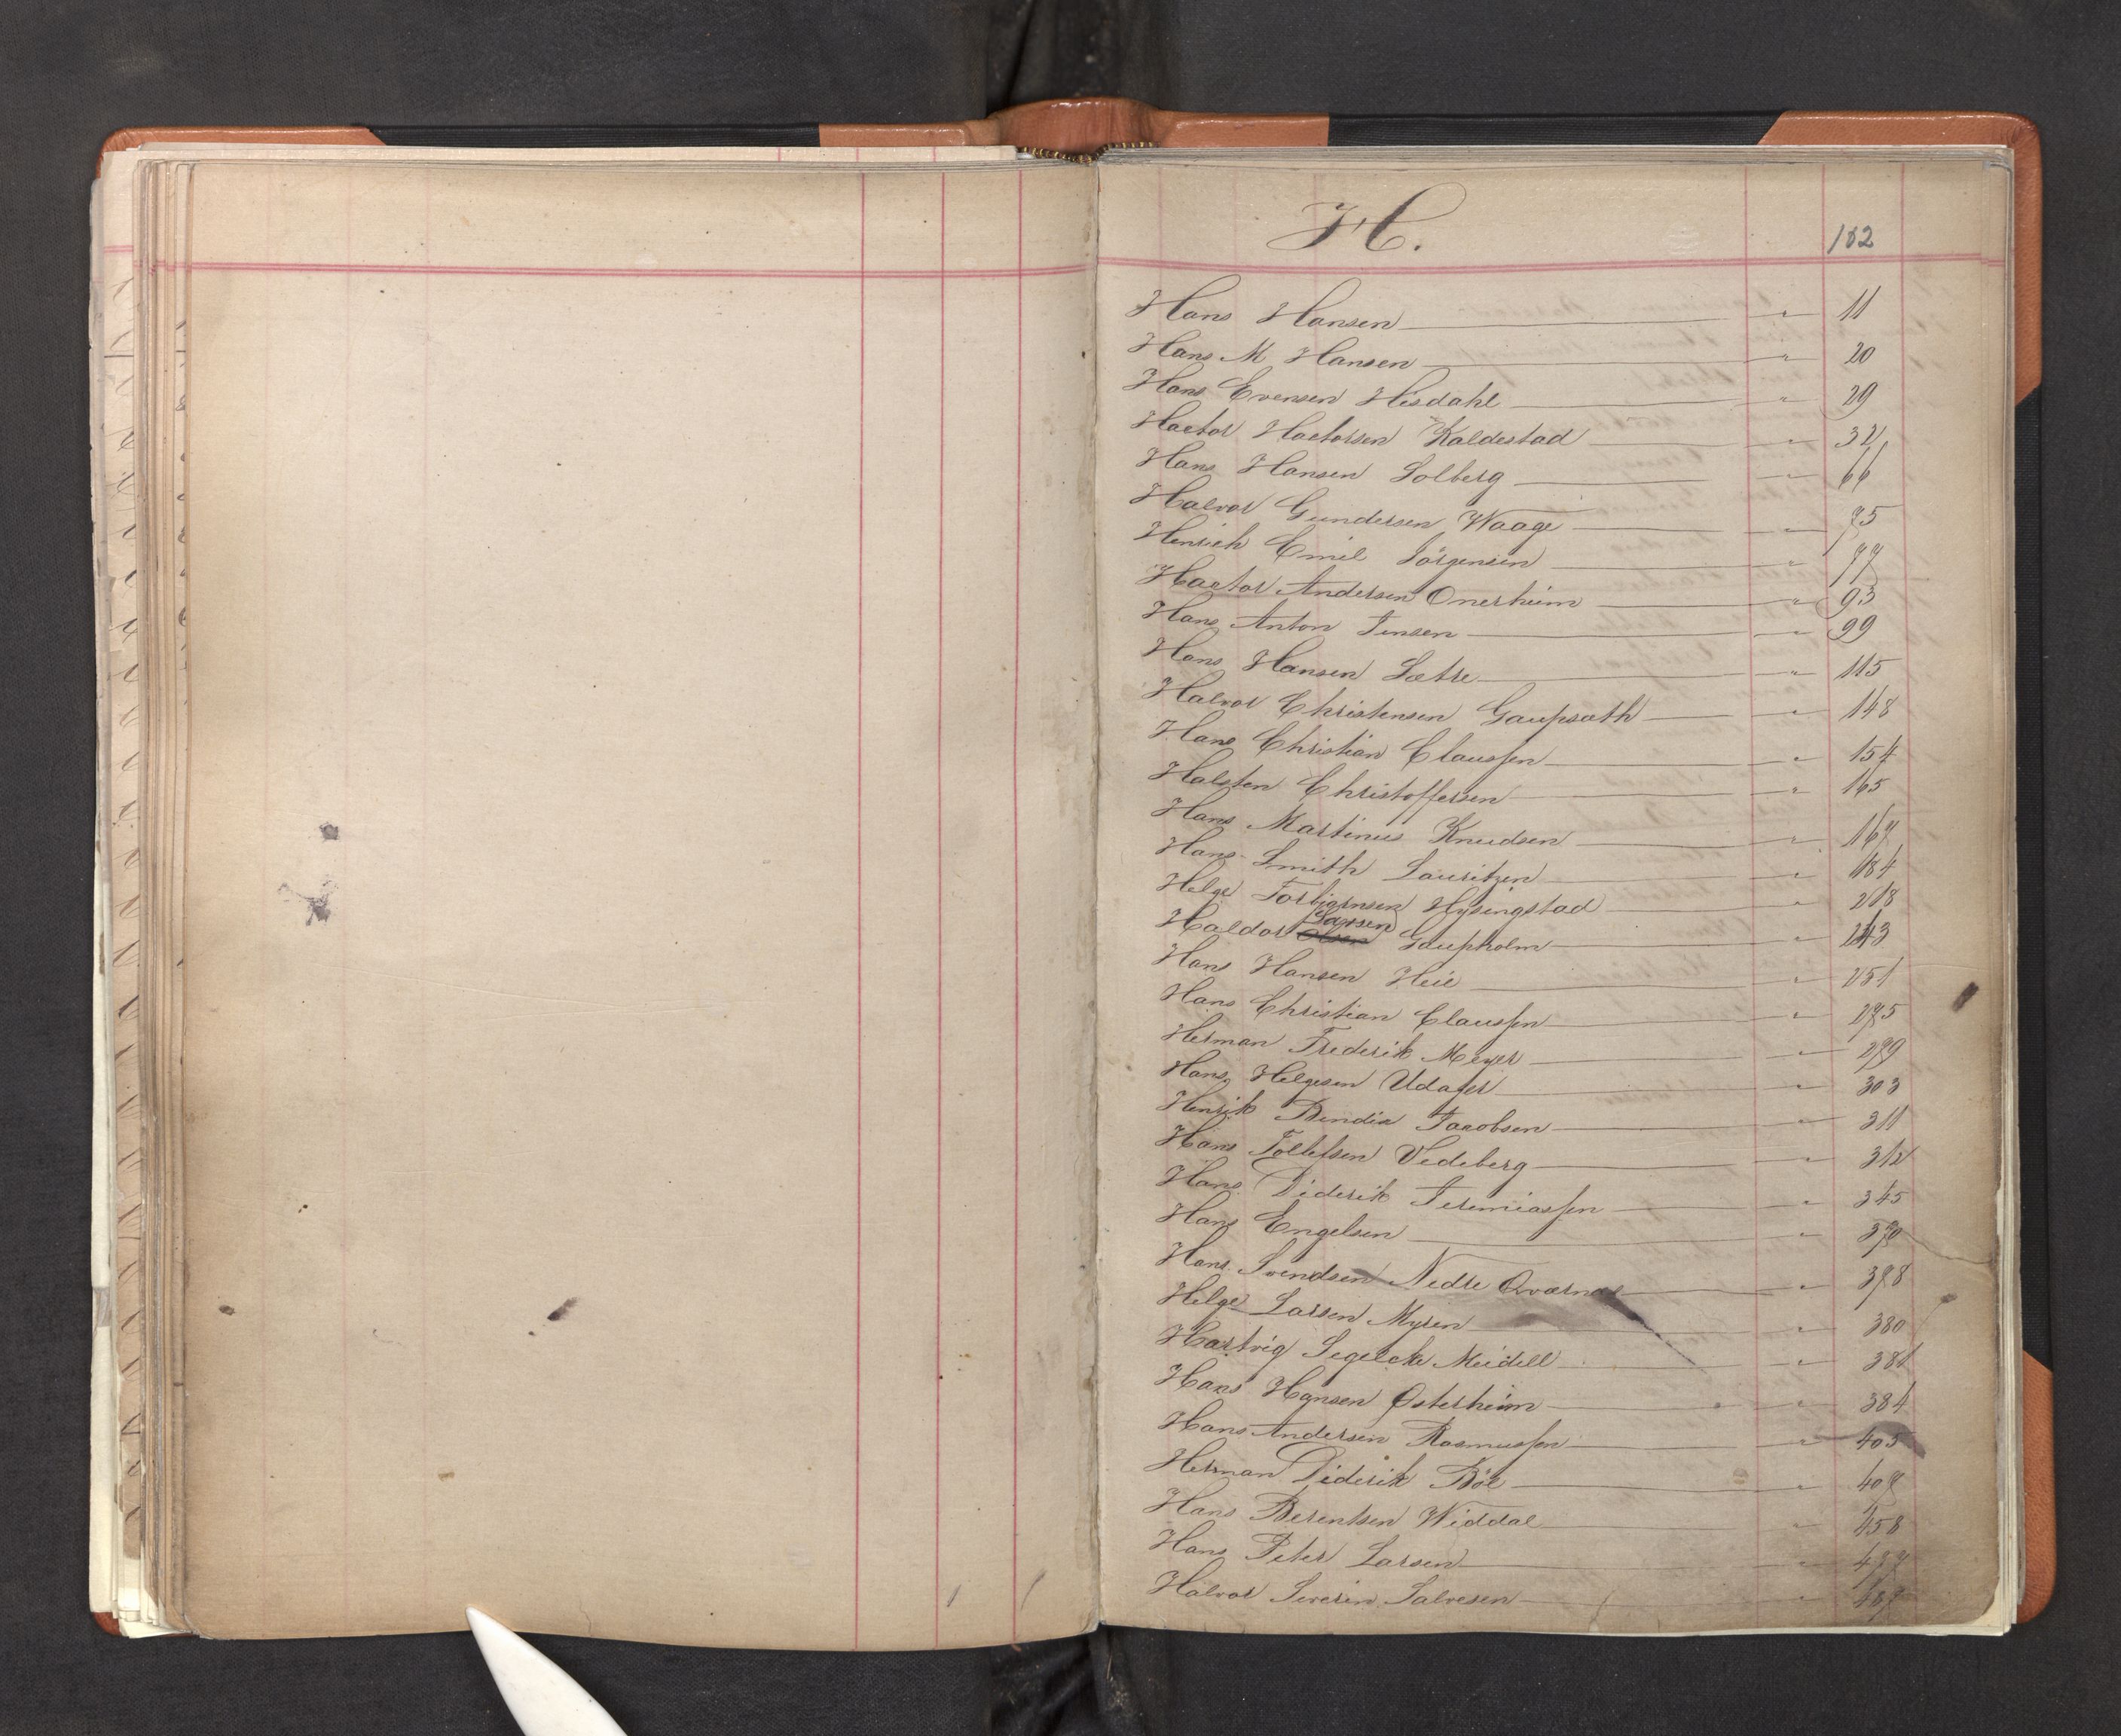 H.
182
Hans Hansen " 11
Hans M Hansen " 20
Hans Evensen Hisdahl " 29
Hactor Hactorsen Kaldestad " 32
Hans Hansen Solberg " 66
Halvor Gundersen Waage " 75
Henrich Emil Jörgensen " 77
Hactor Andersen Onerheim " 93
Hans Anton Jensen " 99
Hans Hansen Sætre " 115
Halvor Christensen Gaupsath " 148
Hans Christian Claussen " 154
Halsten Christoffersen " 165
Hans Martinus Knudsen " 167
Hans Smith Lauritzen " 184
Helge Torbjørnsen Hysingstad " 218
Larsen
Haldor Olsen Gaupholm " 243
Hans Hansen Heie " 251
Hans Christian Claussen " 275
Herman Frederik Meyer " 279
Hans Helgesen Udager " 303
Henrik Bendix Jacobsen " 311
Hans Tollefsen Vedeberg " 312
Hans Diderik Jeremiassen " 345
Hans Engelsen " 370
Hans Svendsen Nedre Qvarnæs " 378
Helge Larsen Myren " 380
Hartvig Segelcke Meidell " 381
Hans Hansen Østerheim " 384
Hans Andersen Rasmussen " 405
Herman Diderik Böe " 407
Hans Berentsen Widdal " 458
Hans Peter Larsen " 477
Halvor Severin Salvesen "